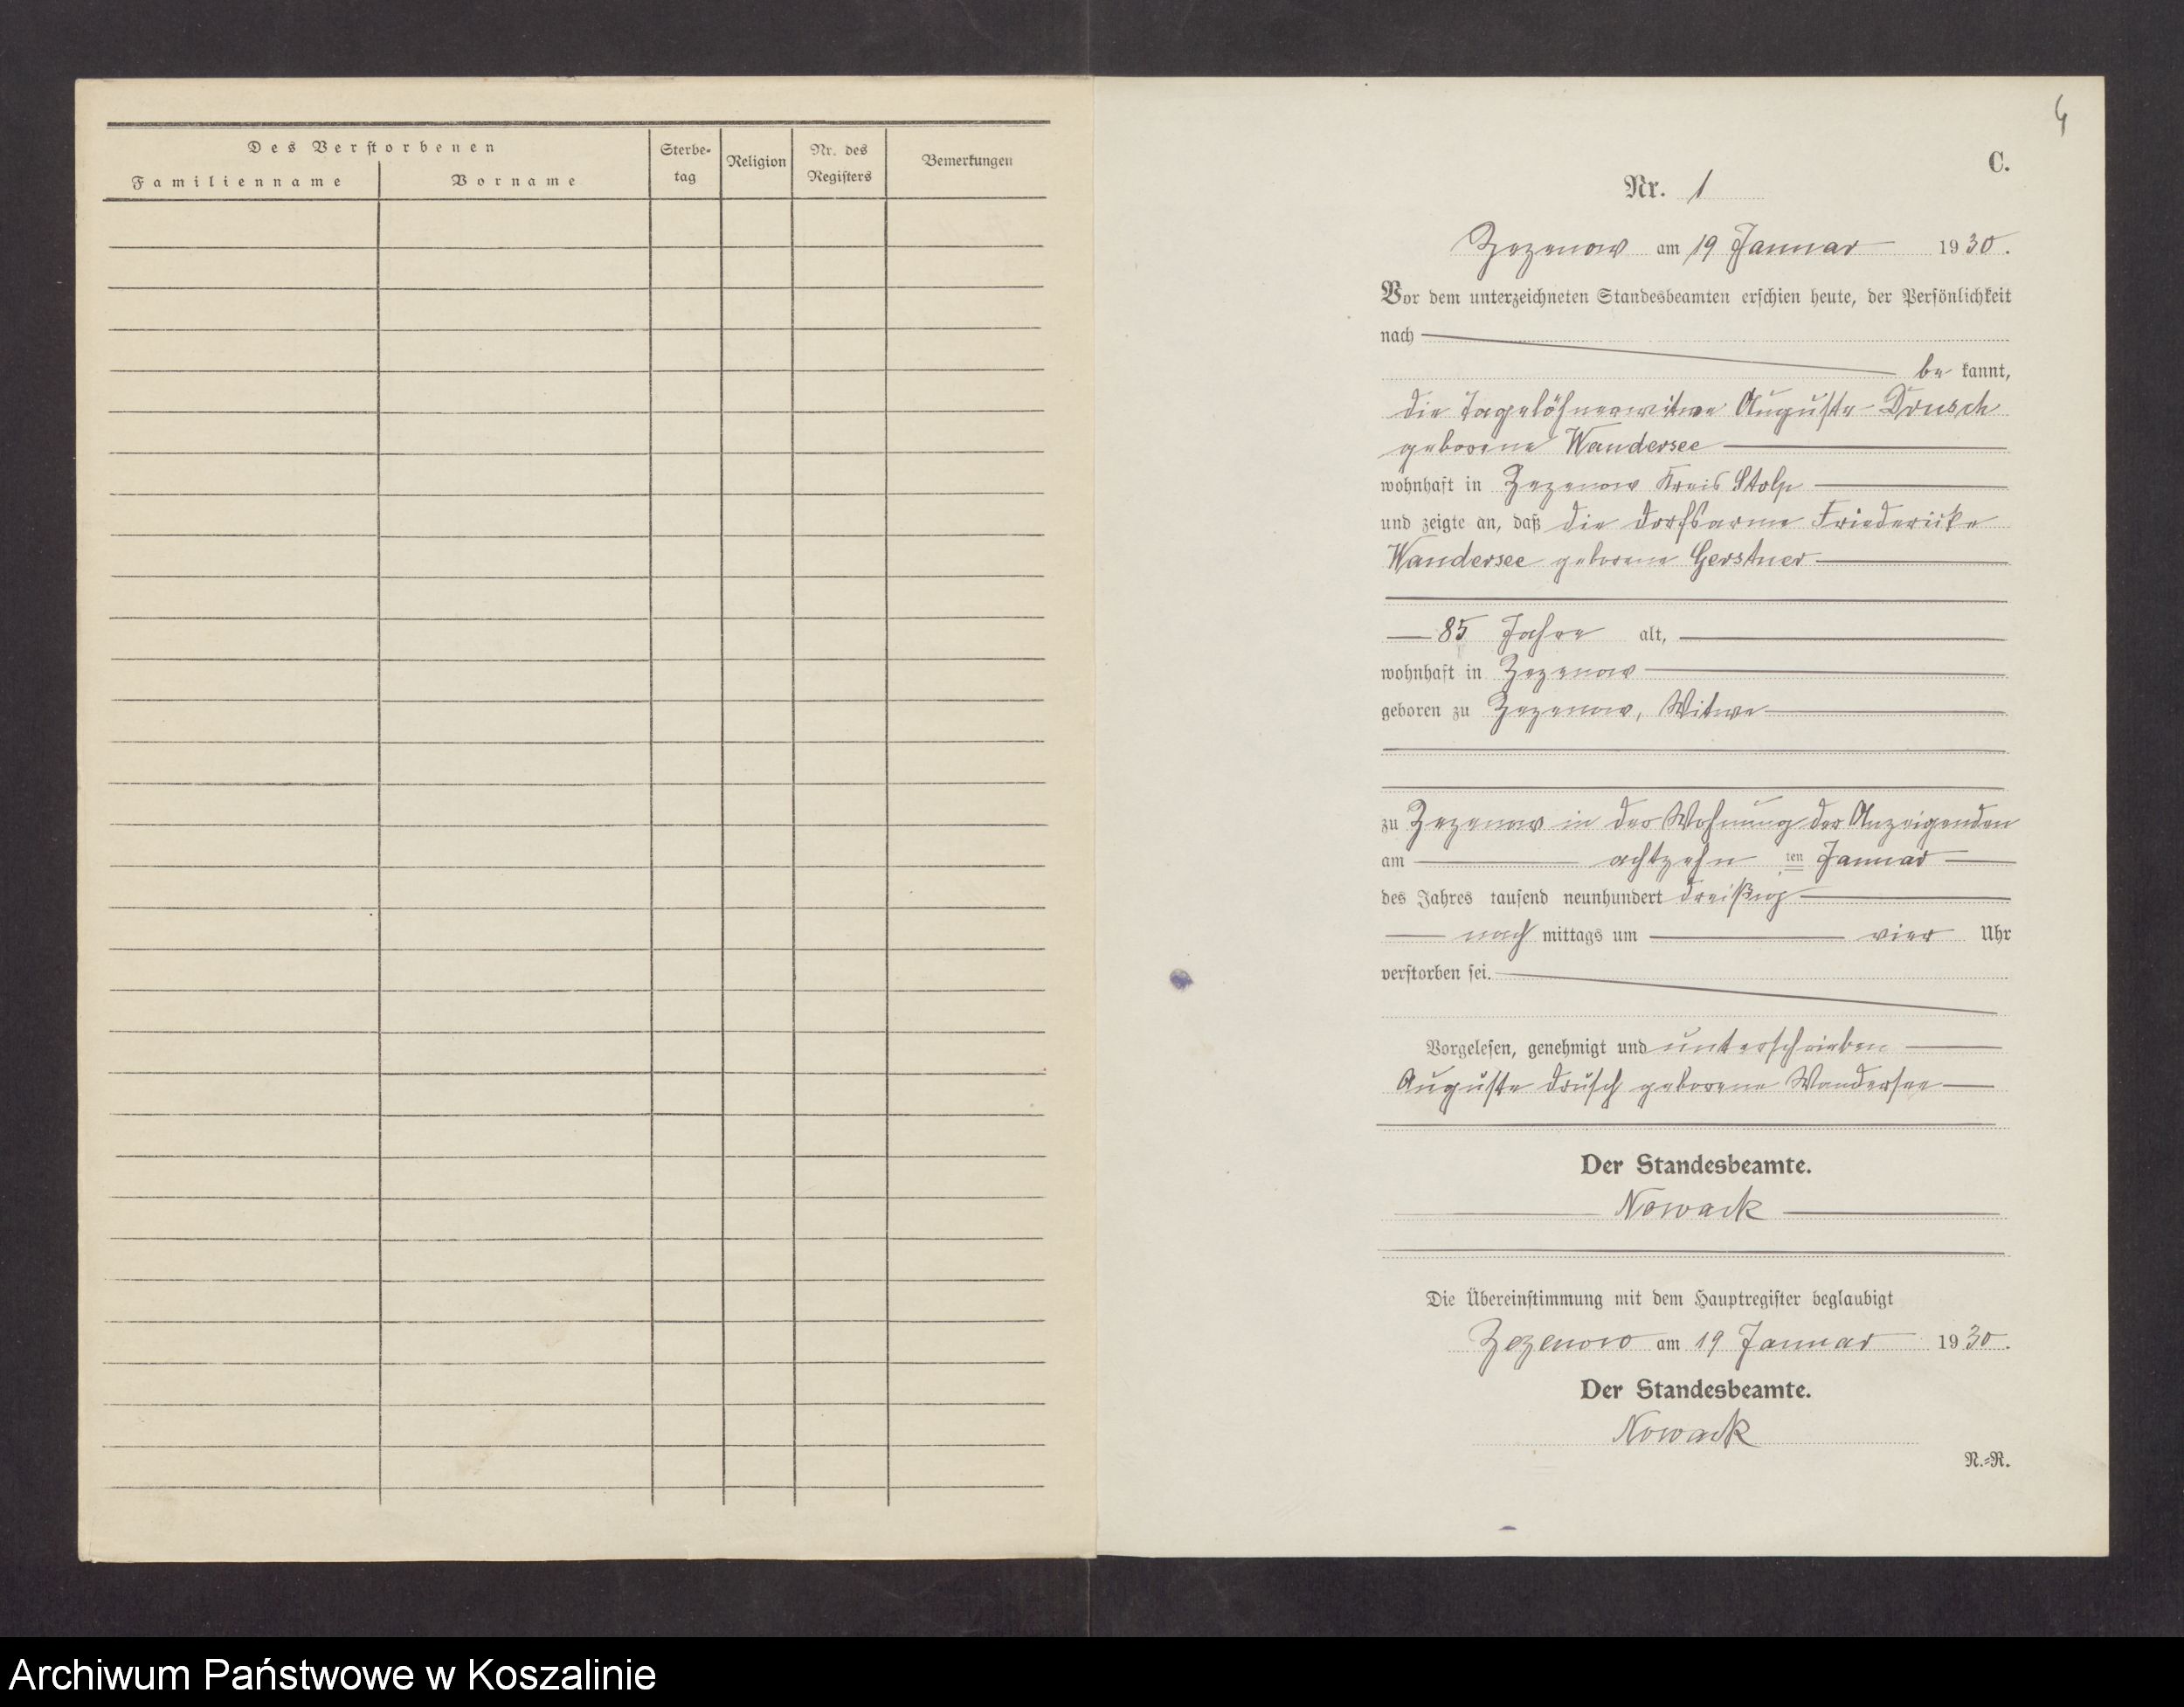 Des Verstorbenen
Familienname
Vorname
Sterbe-
tag
Religion
Nr. des
Registers
Bemerkungen
4
C.
Nr. 1
Zezenow am 19 Januar 1930.
Vor dem unterzeichneten Standesbeamten erschien heute, der Persönlichkeit
nach
be kannt,
die Tagelöhnerwitwe Auguste Drusch
geborene Wandersee
wohnhaft in Zezenow Kreis Stolp
und zeigte an, daß die Dorfsarme Friedericke
Wandersee geborene Gerstner
85 Jahre alt,
wohnhaft in Zezenow
geboren zu Zezenow, Witwe
zu Zezenow in der Wohnung der Anzeigenden
am achtzehn ten Januar
des Jahres tausend neunhundert dreißig
nach mittags um vier Uhr
verstorben sei.
Vorgelesen, genehmigt und unterschrieben
Auguste Drusch geborene Wandersee
Der Standesbeamte.
Nowack
Die Übereinstimmung mit dem Hauptregister beglaubigt
Zezenow am 19 Januar 1930.
Der Standesbeamte.
Nowack
N.=R.
Archiwum Państwowe w Koszalinie